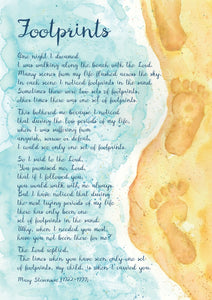 Footprints
One night I dreamed
I was walking along the beach with the Lord.
Many scenes from my life flashed across the sky.
In each scene I noticed footprints in the sand.
Sometimes there were two sets of footprints,
other times there was one set of footprints.
This bothered me because I noticed
that during the low periods of my life,
when I was suffering from
anguish, sorrow or defeat,
I could see only one set of footprints.
So I said to the Lord,
"You promised me, Lord,
that if I followed you,
you would walk with me always.
But I have noticed that during
the most trying periods of my life
there has only been one
set of footprints in the sand.
Why, when I needed you most,
have you not been there for me?"
The Lord replied,
"The times when you have seen only one set
of footprints, my child, is when I carried you."
Mary Stevenson, (1922-1999)